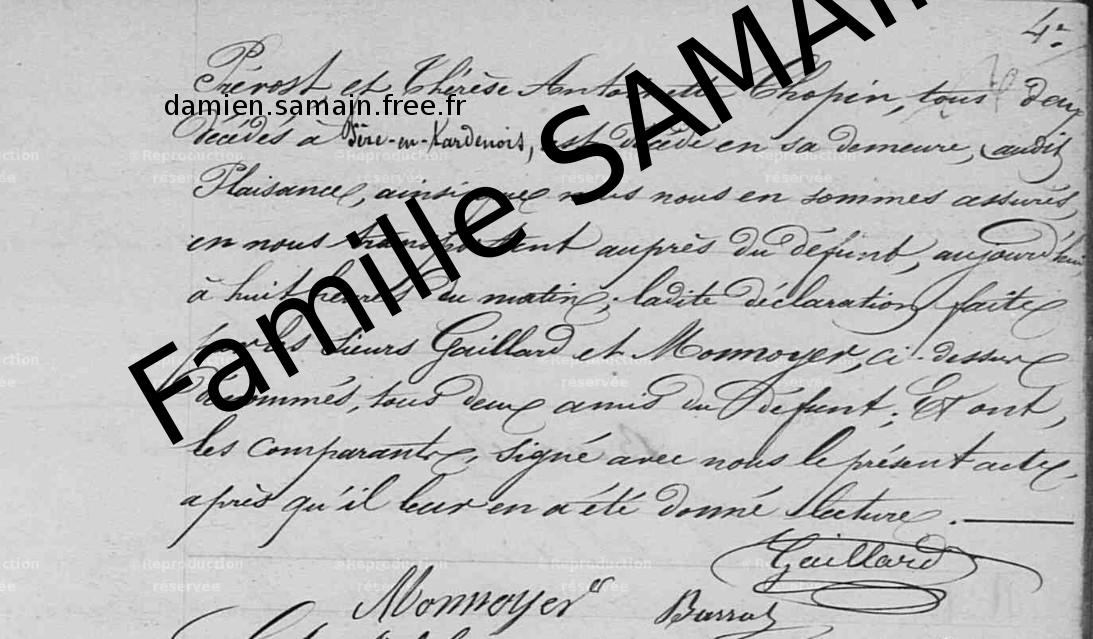 4e
Prévost et Thérèse Antoinette Chopin, tous deux
damien.samain.free.fr
décédés à Fère-en-Tardenois, est décédé en sa demeure, audit
Plaisance, ainsi que nous nous en sommes assurés,
en nous transportant auprès du défunt, aujourd'hui
à huit heures du matin; ladite déclaration faite
par les sieurs Gaillard et Monnoyer, ci-dessus
dénommés, tous deux amis du défunt; Et ont,
les comparants, signé avec nous le présent acte,
après qu'il leur en a été donné lecture.
Gaillard
Monnoyer
Famille SAMAI
©Reproduction
réservée